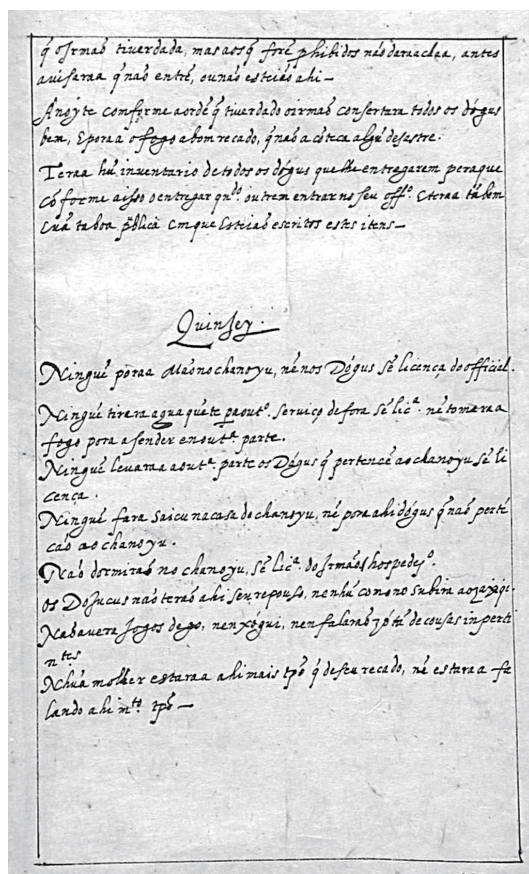 q̃ o Irmaõ tiuerdada, mas aos q̃ forẽ phibidos naõ daraa chaa, antes
auisaraa q̃ naõ entrẽ, ou naõ esteiaõ ahi —
Anoyte comforme a ordẽ q̃ tiuer dado o irmaõ consertara todos os dógus
bem, E poraa o fogo a bom recado, q̃ naõ acõteca algũ desastre.
Teraa hũ inventario de todos os dógus que lhe entregarem pera que
cõforme a isso o entregar qñdo outrem entrar no seu offº. E teraa tãbem
hũa taboa pp̃lica em que Esteiaõ escritos estes itens —
Quinsey.
Ninguẽ poraa Maõ no chanoyu, nẽ nos Dógus sẽ licença do official.
Ninguẽ tirara agua quẽte pa outº. serviço de fora sẽ licª. nẽ tomaraa
fogo pora asender en outª. parte.
Ninguẽ levaraa a outª. parte os Dógus q̃ pertencẽ ao chanoyu sẽ li
cença.
Ninguẽ fara saicu na casa do chanoyu, nẽ pora ahi dógus q̃ naõ pertẽ
cáõ ao chanoyu.
Naõ dormiraõ no chanoyu, sẽ licª. do Irmaõ hospedrº.
Os Dojucus naõ teraõ ahi seu repouso, nen hũ como no subir ao zaxiqi.
Na avera Jogos de go, nen xógui, nen falaraõ
de cousas inperti
ntes
Nhũa molher estaraa ahi mais tpõ q̃ de seu recado, nẽ estaraa fa
lando ahi mtº. tpõ —